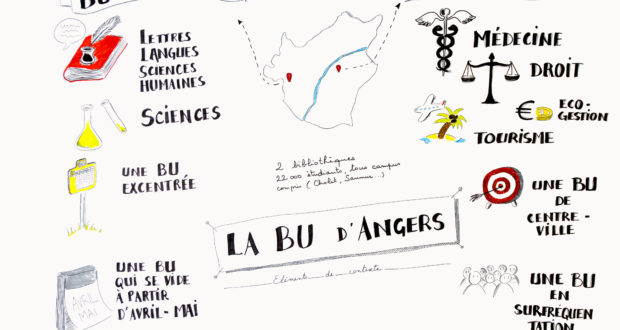 BU
LETTRES
LANGUES
SCIENCES
HUMAINES
SCIENCES
UNE BU
EXCENTRÉE
UNE BU
QUI SE VIDE
À PARTIR
D'AVRIL-MAI
AVRIL
MAI
2 bibliothèques
22 000 étudiants, tous campus
compris (Cholet, Saumur...)
LA BU D'ANGERS
Eléments de contexte
MÉDECINE
DROIT
€
ECO-
GESTION
TOURISME
UNE BU
DE
CENTRE-
VILLE
UNE BU
EN
SURFRÉQUEN
TATION